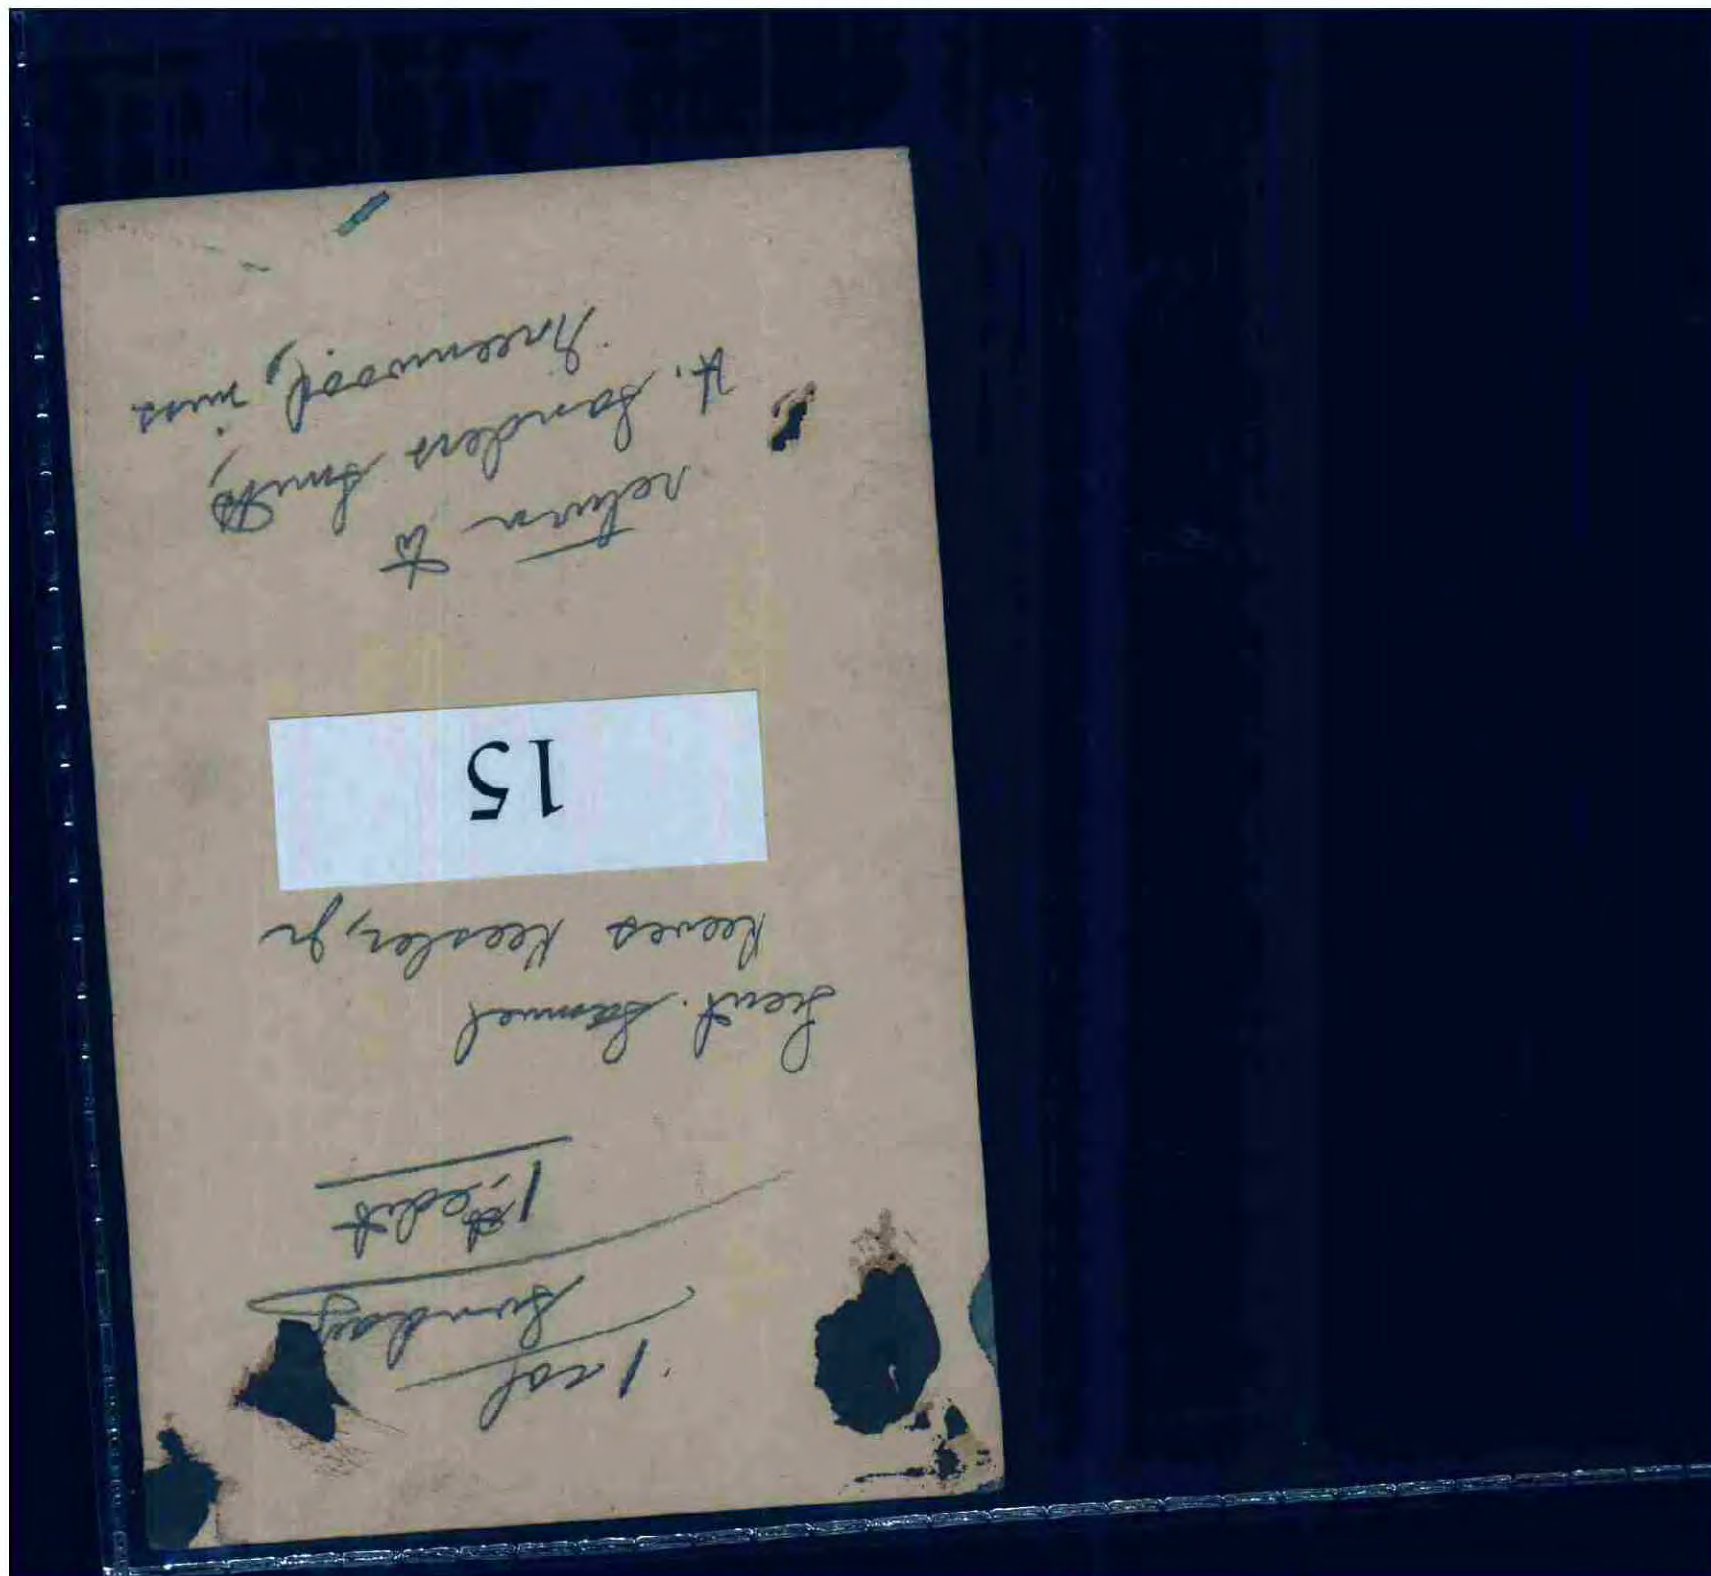 1 col
Sunday
1st edit
Lieut. Samuel
Reeves Keesler, Jr
15
return to
H. Sanders Smith,
Greenwood, Miss